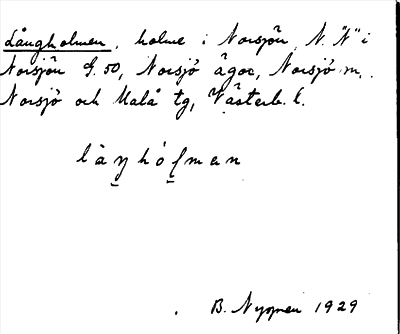 Långholmen, holme i Norsjön, N. "N" i
Norsjön S. 50, Norsjö ägor, Norsjö m.
Norsjö och Malå tg, Västerb. l.
l å ŋ h ó l m e n
B. 1929